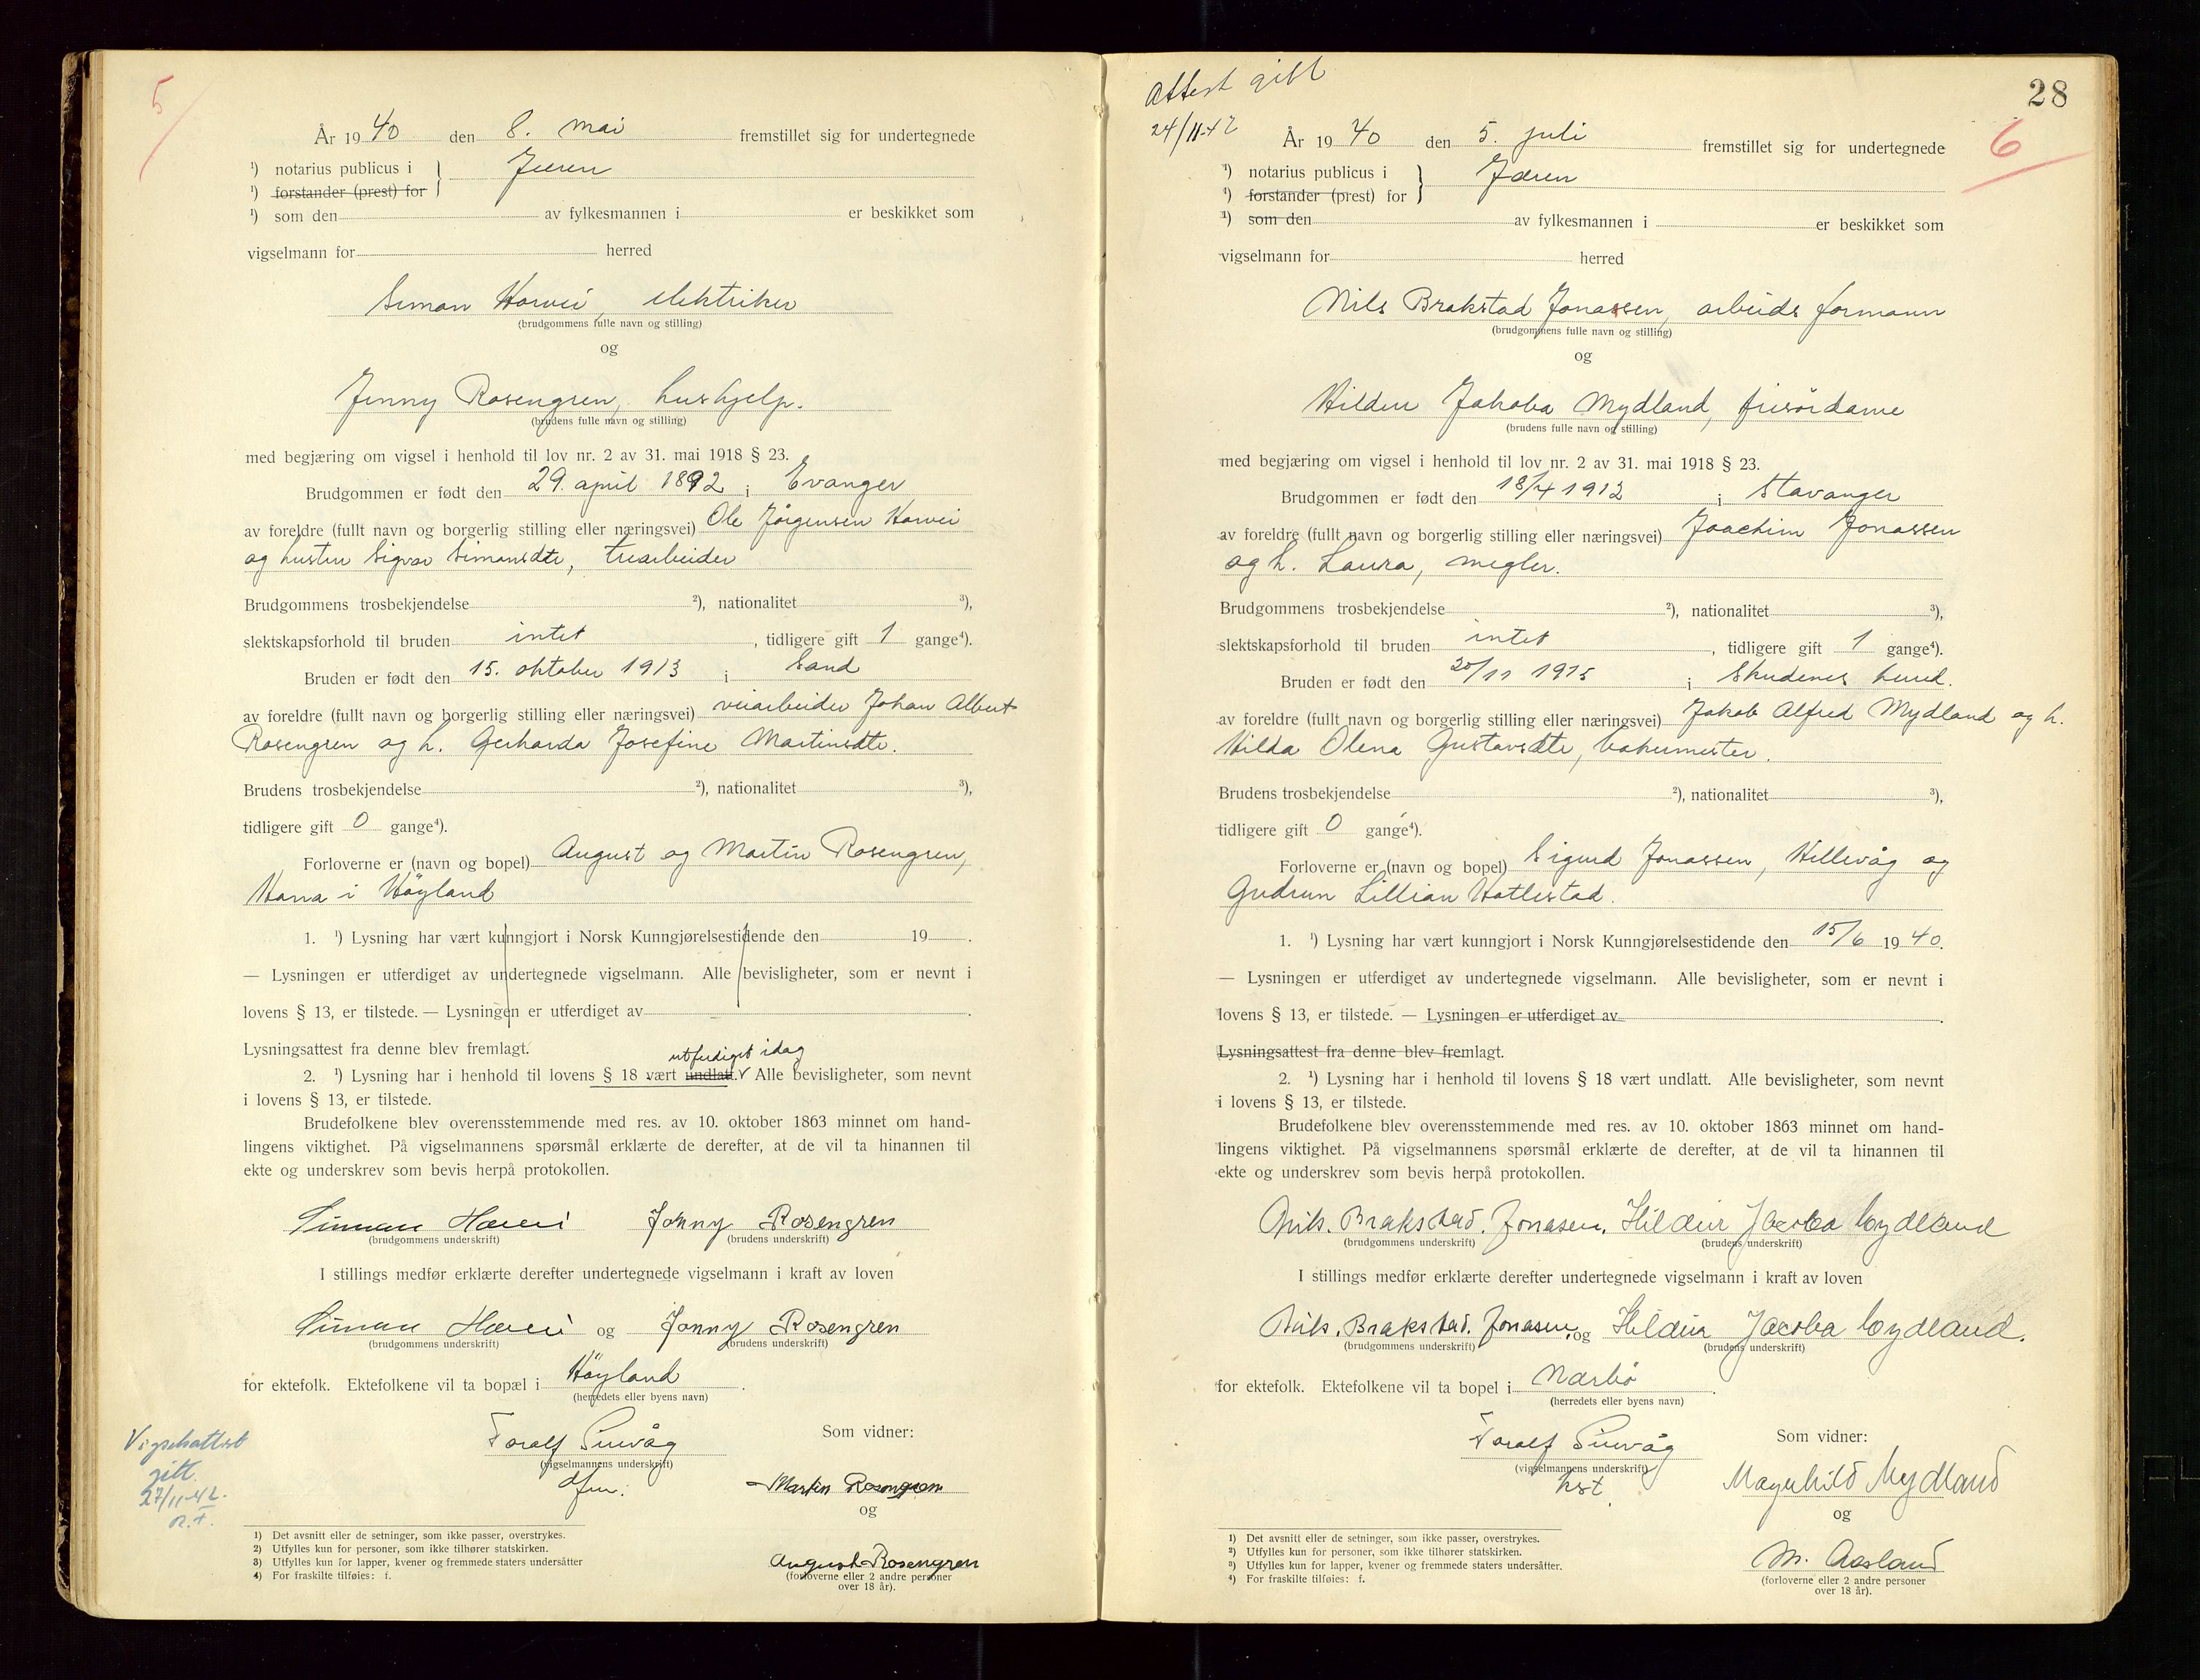 5
År 1940 den 8. mai fremstillet sig for undertegnede
¹) notarius publicus i } Jæren
¹) forstander (prest) for
¹) som den av fylkesmannen i er beskikket som
vigselmann for herred
Simon Horvei, elektriker
(brudgommens fulle navn og stilling)
og
Jenny Rosengren, hushjelp.
(brudens fulle navn og stilling)
med begjæring om vigsel i henhold til lov nr. 2 av 31. mai 1918 § 23.
Brudgommen er født den 29. april 1892 i Evanger
av foreldre (fullt navn og borgerlig stilling eller næringsvei) Ole Jørgensen Horvei
og hustru Sigva Simonsdtr, trearbeider
Brudgommens trosbekjendelse ²), nationalitet ³),
slektskapsforhold til bruden intet, tidligere gift 1 gange⁴).
Bruden er født den 15. oktober 1913 i Sand
av foreldre (fullt navn og borgerlig stilling eller næringsvei) veiarbeider Johan Albert
Rosengren og h. Gerharda Josefine Martinsdtr.
Brudens trosbekjendelse ²), nationalitet ³),
tidligere gift 0 gange⁴).
Forloverne er (navn og bopel) August og Martin Rosengren,
Hana i Høyland
1. ¹) Lysning har vært kunngjort i Norsk Kunngjørelsestidende den 19 .
— Lysningen er utferdiget av undertegnede vigselmann. Alle bevisligheter, som er nevnt i
lovens § 13, er tilstede. — Lysningen er utferdiget av .
Lysningsattest fra denne blev fremlagt.
utferdiget idag
2. ¹) Lysning har i henhold til lovens § 18 vært undlatt. Alle bevisligheter, som nevnt
i lovens § 13, er tilstede.
Brudefolkene blev overensstemmende med res. av 10. oktober 1863 minnet om hand-
lingens viktighet. På vigselmannens spørsmål erklærte de derefter, at de vil ta hinannen til
ekte og underskrev som bevis herpå protokollen.
Simon Horvei Jenny Rosengren
(brudgommens underskrift) (brudens underskrift)
I stillings medfør erklærte derefter undertegnede vigselmann i kraft av loven
Simon Horvei og Jenny Rosengren
(brudgommens underskrift) (brudens underskrift)
for ektefolk. Ektefolkene vil ta bopæl i Høyland .
(herredets eller byens navn)
Toralf Sirevåg Som vidner:
(vigselmannens underskrift)
dfm. Martin Rosengren
og
August Rosengren
(forloverne eller 2 andre personer
over 18 år).
Vigselsattest
gitt
27/11-42.
¹) Det avsnitt eller de setninger, som ikke passer, overstrykes.
²) Utfylles kun for personer, som ikke tilhører statskirken.
³) Utfylles kun for lapper, kvener og fremmede staters undersåtter
⁴) For fraskilte tilføies: f.
Attest gitt
24/11-42
28
6
År 1940 den 5. juli fremstillet sig for undertegnede
¹) notarius publicus i } Jæren
¹) forstander (prest) for
¹) som den av fylkesmannen i er beskikket som
vigselmann for herred
Nils Brakstad Jonassen, arbeids formann
(brudgommens fulle navn og stilling)
og
Hildur Jakoba Mydland, frisørdame
(brudens fulle navn og stilling)
med begjæring om vigsel i henhold til lov nr. 2 av 31. mai 1918 § 23.
Brudgommen er født den 18/4 1912 i Stavanger
av foreldre (fullt navn og borgerlig stilling eller næringsvei) Joachim Jonassen
og h. Laura, megler.
Brudgommens trosbekjendelse ²), nationalitet ³),
slektskapsforhold til bruden intet, tidligere gift 1 gange⁴).
Bruden er født den 20/11 1915 i Skudenes herred.
av foreldre (fullt navn og borgerlig stilling eller næringsvei) Jakob Alfred Mydland og h.
Hilda Olena Gustavsdtr, bakermester.
Brudens trosbekjendelse ²), nationalitet ³),
tidligere gift 0 gange⁴).
Forloverne er (navn og bopel) Sigurd Jonassen, Hillevåg og
Gudrun Lillian Hatlestad.
1. ¹) Lysning har vært kunngjort i Norsk Kunngjørelsestidende den 15/6 1940.
— Lysningen er utferdiget av undertegnede vigselmann. Alle bevisligheter, som er nevnt i
lovens § 13, er tilstede. — Lysningen er utferdiget av .
Lysningsattest fra denne blev fremlagt.
2. ¹) Lysning har i henhold til lovens § 18 vært undlatt. Alle bevisligheter, som nevnt
i lovens § 13, er tilstede.
Brudefolkene blev overensstemmende med res. av 10. oktober 1863 minnet om hand-
lingens viktighet. På vigselmannens spørsmål erklærte de derefter, at de vil ta hinannen til
ekte og underskrev som bevis herpå protokollen.
Nils. Brakstad. Jonasen. Hildur Jacoba Mydland
(brudgommens underskrift) (brudens underskrift)
I stillings medfør erklærte derefter undertegnede vigselmann i kraft av loven
Nils. Brakstad. Jonasen. og Hildur Jacoba Mydland.
(brudgommens underskrift) (brudens underskrift)
for ektefolk. Ektefolkene vil ta bopel i Nærbø .
(herredets eller byens navn)
Toralf Sirevåg Som vidner:
(vigselmannens underskrift)
hst. Magnhild Mydland
og
M. Aasland
(forloverne eller 2 andre personer
over 18 år).
¹) Det avsnitt eller de setninger, som ikke passer, overstrykes.
²) Utfylles kun for personer, som ikke tilhører statskirken.
³) Utfylles kun for lapper, kvener og fremmede staters undersåtter.
⁴) For fraskilte tilføies: f.